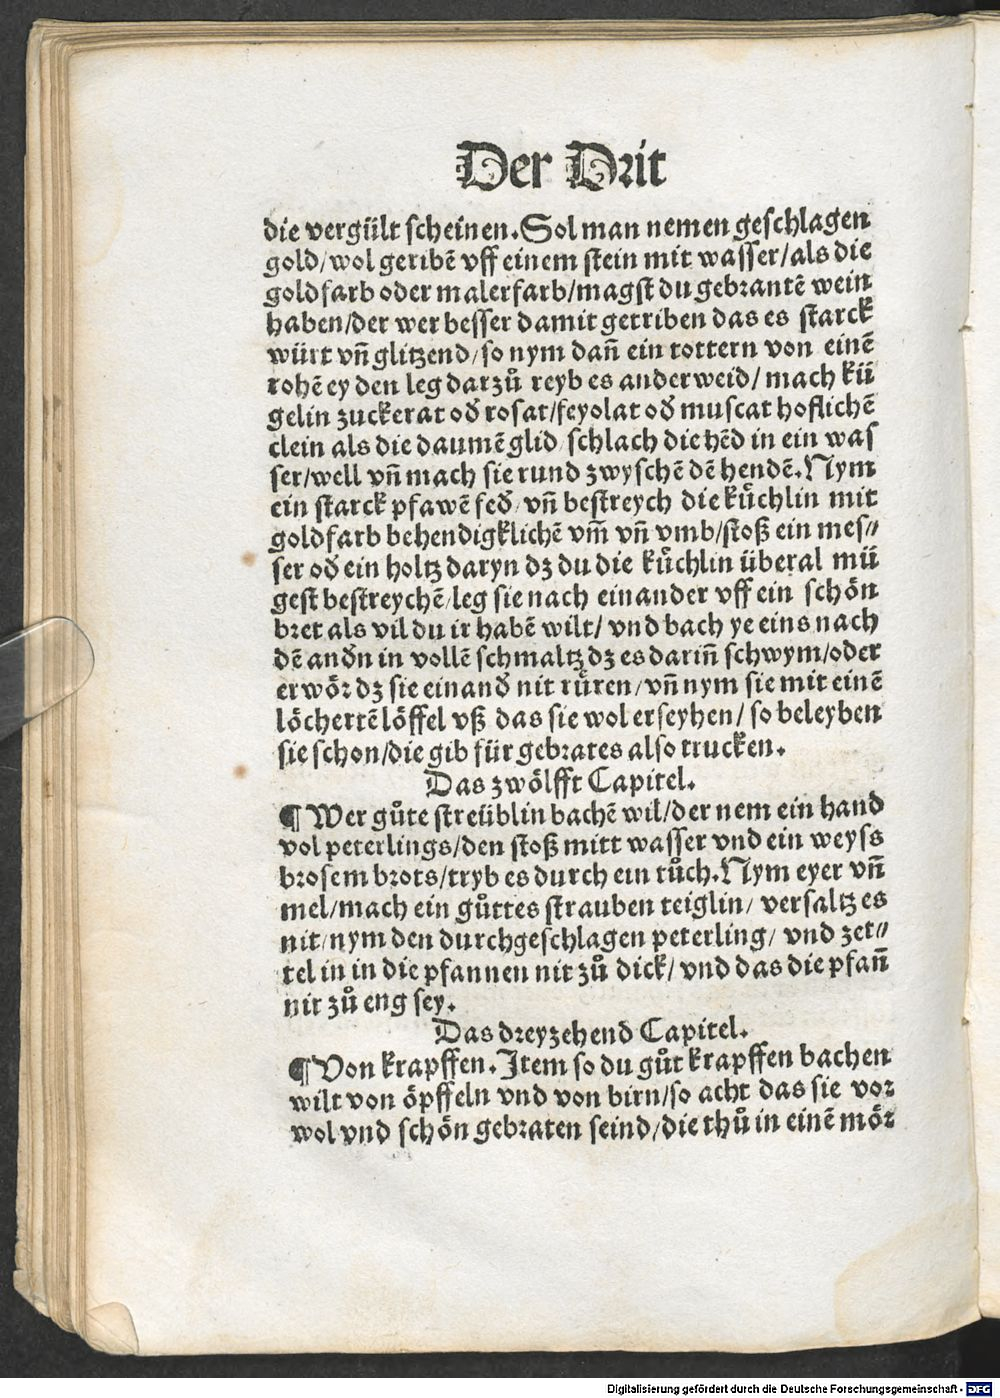 Der Drit
die vergült scheinen. Sol man nemen geschlagen
gold/wol geribē vff einem stein mit wasser/als die
goldfarb oder malerfarb/magst du gebrantē wein
haben/der wer besser damit getriben das es starck
würt vn̄ glitzend/so nym dan̄ ein tottern von einē
rohē ey den leg darzů reyb es anderweid/mach kü
gelin zuckerat od̄ rosat/feyolat od̄ muscat hoflichē
clein als die daumē glid/schlach die hēd in ein was
ser/well vn̄ mach sie rund zwyschē dē hendē. Nym
ein starck pfawē fed̄/vn̄ bestreych die kůchlin mit
goldfarb behendigklichē vm̄ vn̄ vmb/stoß ein mes⸗
ser od̄ ein holtz daryn dz du die kůchlin überal mü
gest bestreychē/leg sie nach einander vff ein schön
bret als vil du ir habē wilt/vnd bach ye eins nach
dē and̄n in vollē schmaltz dz es darin̄ schwym/oder
erwör dz sie einand̄ nit rüren/vn̄ nym sie mit einē
löchertē löffel vß das sie wol erseyhen/so beleyben
sie schon/die gib für gebrates also trucken.
Das zwölfft Capitel.
¶ Wer gůte streüblin bachē wil/der nem ein hand
vol peterlings/den stoß mitt wasser vnd ein weyss
brosem brots/tryb es durch ein tůch. Nym eyer vn̄
mel/mach ein gůttes strauben teiglin/versaltz es
nit/nym den durchgeschlagen peterling/vnd zet⸗
tel in in die pfannen nit zů dick/vnd das die pfan̄
nit zů eng sey.
Das dreyzehend Capitel.
¶ Von krapffen. Item so du gůt krapffen bachen
wilt von öpffeln vnd von birn/so acht das sie vor
wol vnd schön gebraten seind/die thů in einē mör
Digitalisierung gefördert durch die Deutsche Forschungsgemeinschaft - DFG